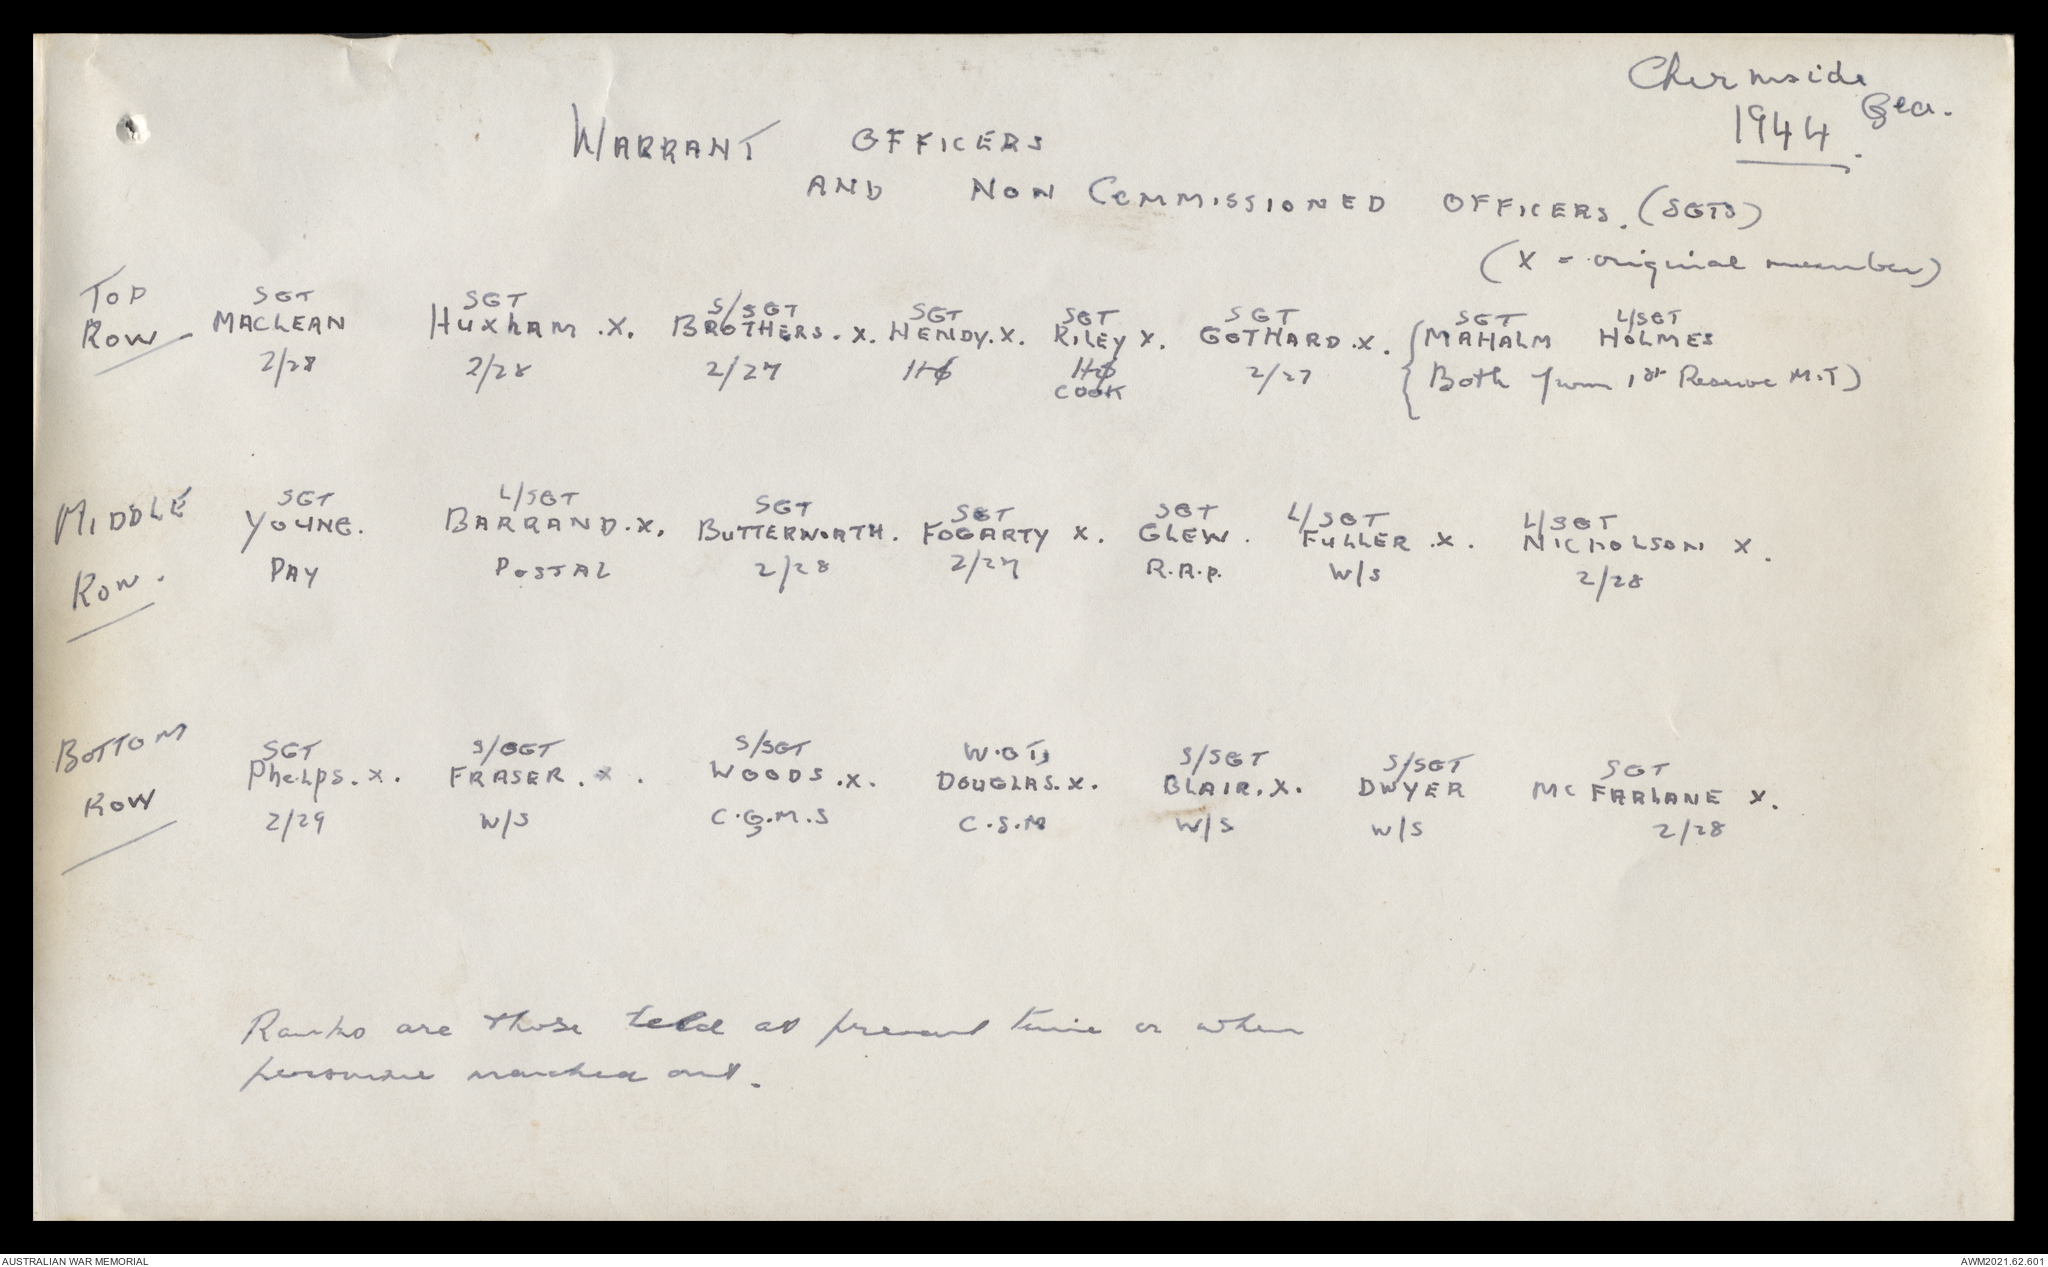 Chermside
Qld.
1944.
WARRANT OFFICERS
AND NON COMMISSIONED OFFICERS. (SGTS)
(X = original member)
TOP
ROW
SGT SGT S/SGT SGT SGT SGT SGT L/SGT
MACLEAN HUXHAM .X. BROTHERS. X. HENDY. X. RILEY X. GOTHARD .X. { MAHALM HOLMES
2/28 2/28 2/27 HQ HQ 2/27 Both from 1st Reserve M.T)
COOK
MIDDLE
ROW.
SGT L/SGT SGT SGT SGT L/SGT L/SGT
YOUNG. BARRAND. X. BUTTERWORTH. FOGARTY X. GLEW. FULLER .X. NICHOLSON X.
PAY POSTAL 2/28 2/27 R.A.P. W/S 2/28
BOTTOM
ROW
SGT S/SGT S/SGT W.O II S/SGT S/SGT SGT
PHELPS. X. FRASER. X. WOODS .X. DOUGLAS. X. BLAIR. X. DWYER MCFARLANE X.
2/29 W/S C.Q.M.S C.S.M W/S W/S 2/28
Ranks are those held at present time or when
personnel marched out.
AUSTRALIAN WAR MEMORIAL
AWM2021.62.601